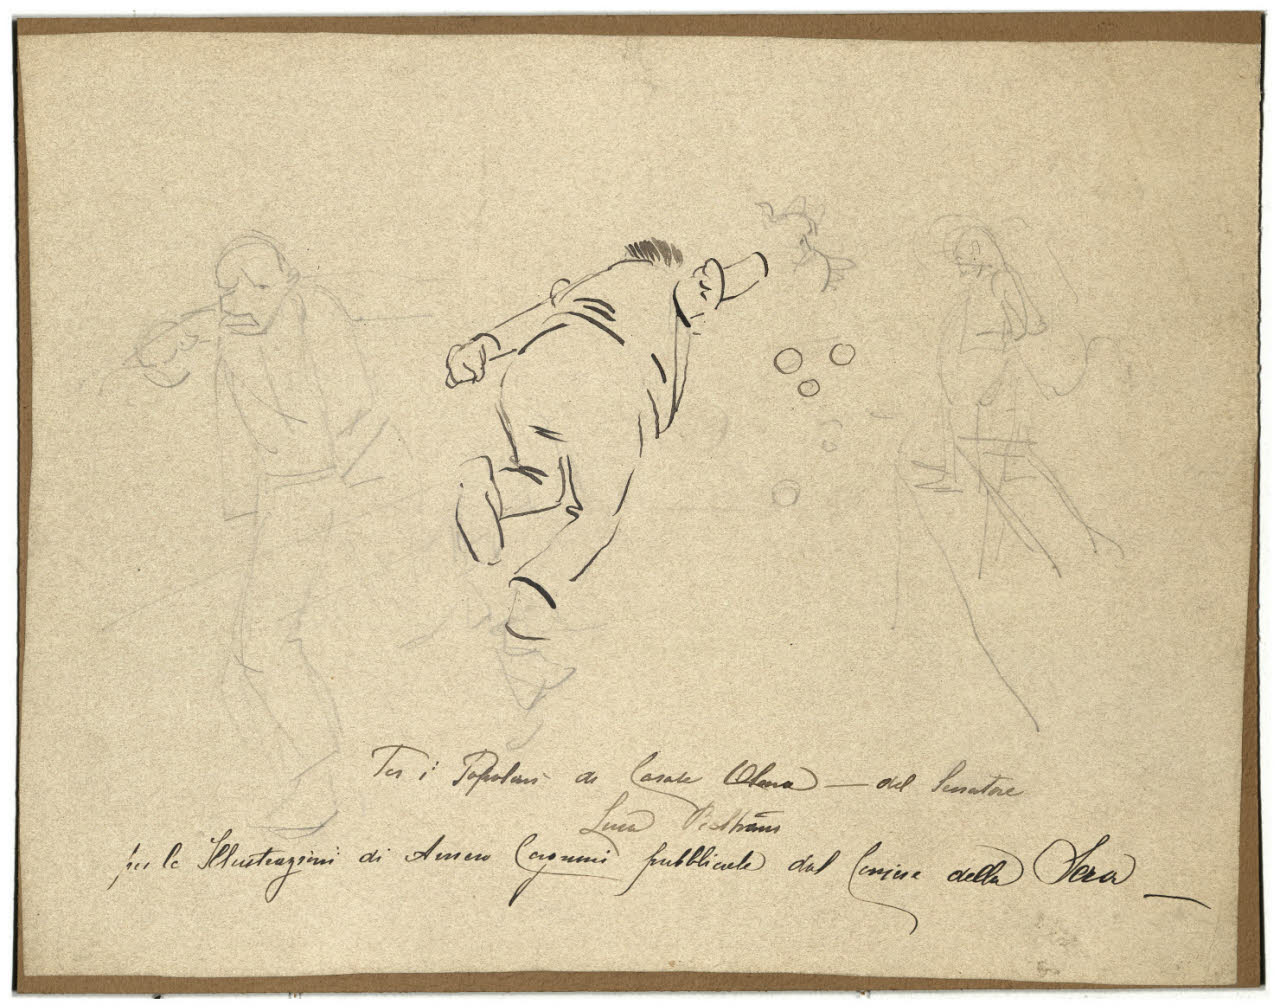 Per i Popolari di Casale Olona — del Senatore
Luca Beltrami
per le Illustrazioni di Amero Cagnoni pubblicate dal Corriere della Sera —